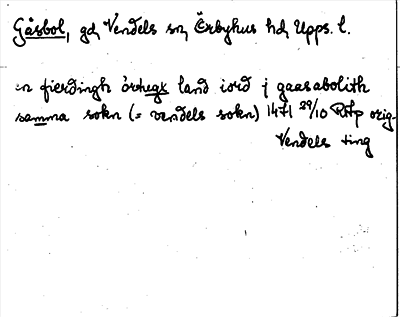 Gåsbol, gd Vendels sn, Örbyhus hd, Upps. l.
en fierdingh örtugx land iord j gaasabolith
samma sokn (= vendels sokn) 1471 29/10 RAp orig.
Vendels ting